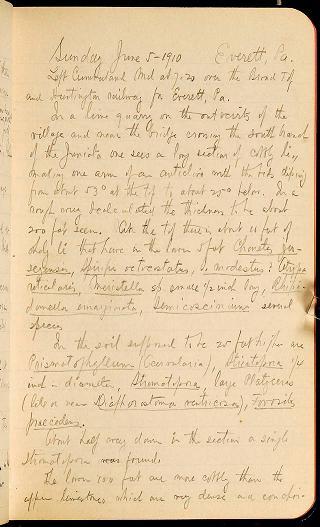 Sunday June 5-1910 Everett, Pa.
Left Cumberland Md at 7:20 over the Broad Top
and Huntington railway for Everett, Pa.
In a lime quarry on the outskirts of the
village and near the bridge crossing the South branch
of the Juniata one sees a long section of cobbly lime,
making one arm of an anticline with the beds dipping
from about 53° at the top to about 25° below. In a
rough way I calculated the thickness to be about
200 feet seen. At the top there is about 10 feet of
shaly ls that have in the lower 5 feet Chonetes jer-
seyensis, Spirifer octocostatus, S. modestus? Atrypa
reticularis, Meristella sp. small 1/2 inch long, Rhipi-
domella emarginata, Semicoscinium several
species.
In the soil supposed to be 20 feet higher are
Prismatophyllum (Ceriovularia), Striatopora 1/4
inch in diameter, Stromatopora, large Platyceras
(like or near Diaphorostoma ventricosa), Favosites
praecedens.
About half way down in the section a single
stromatopora was found.
The lower 100 feet are more cobbly than the
upper limestones which are very dense and conchoi-